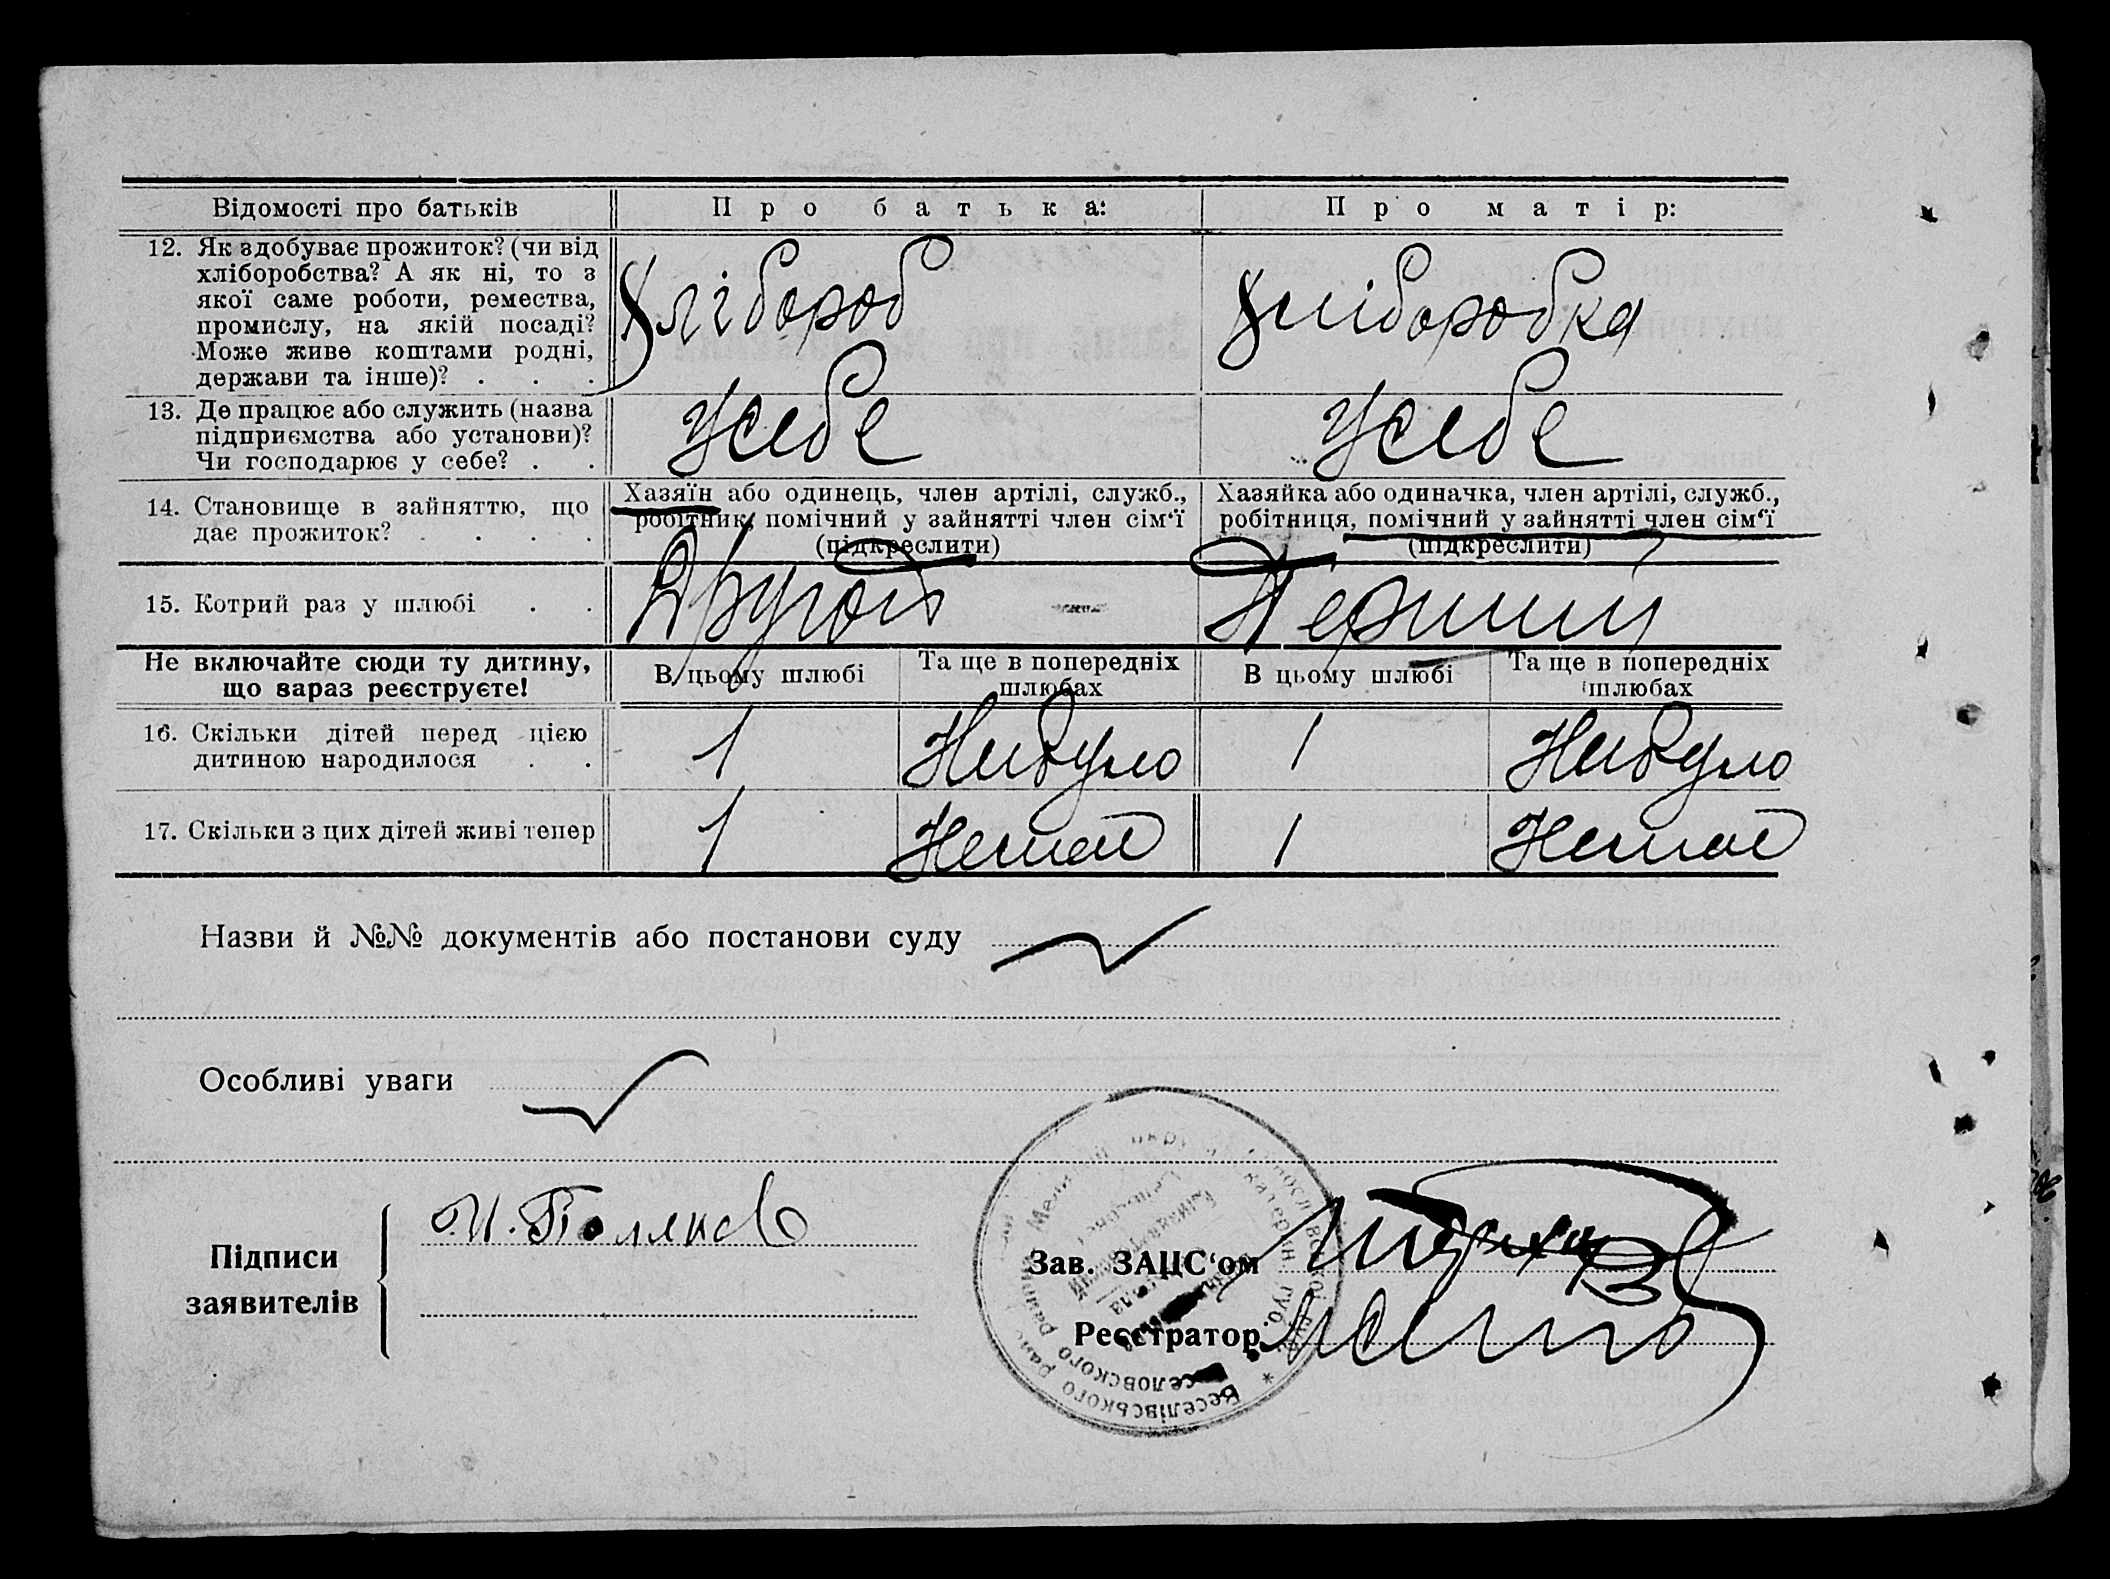 Відомості про батьків
Про батька:
Про матір:
12. Як здобуває прожиток? (чи від
хліборобства? А як ні, то з
якої саме роботи, ремества,
промислу, на якій посаді?
Може живе коштами родні,
держави та інше)? . . .
Хлібороб
Хліборобка
13. Де працює або служить (назва
підприємства або установи)?
Чи господарює у себе? . .
Усебе
Усебе
14. Становище в зайняттю, що
дає прожиток? . . . .
Хазяїн або одинець, член артілі, служб.,
робітник, помічний у зайнятті член сім'ї
(підкреслити)
Хазяйка або одиначка, член артілі, служб.,
робітниця, помічний у зайнятті член сім'ї
(підкреслити)
15. Котрий раз у шлюбі . .
Другой
Первий
Не включайте сюди ту дитину,
що зараз реєструєте!
В цьому шлюбі
Та ще в попередніх
шлюбах
В цьому шлюбі
Та ще в попередніх
шлюбах
16. Скільки дітей перед цією
дитиною народилося . .
1
Нибуло
1
Нибуло
17. Скільки з цих дітей живі тепер
1
Немає
1
Немає
Назви й №№ документів або постанови суду
Особливі уваги
Підписи
заявителів
И. Поляков
Зав. ЗАЦС'ом
Реєстратор
Веселівського